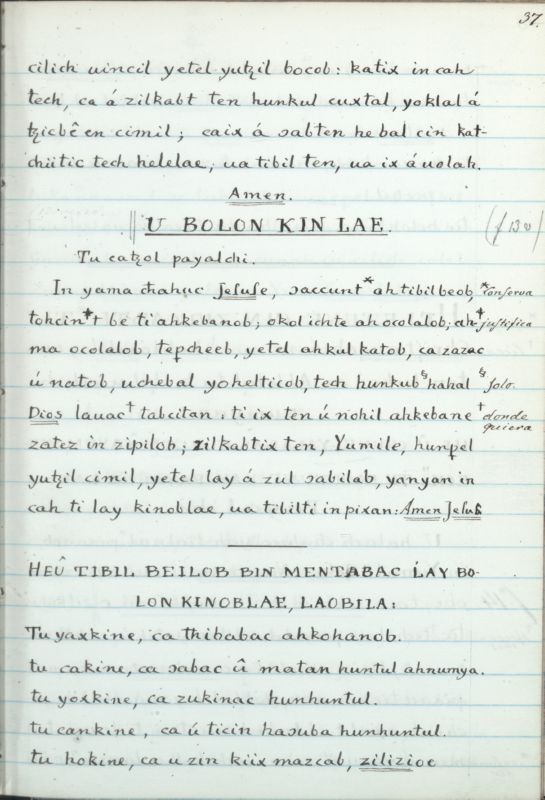 37.
cilich uincil yetel yutzil bocob: katix in cah
tech, ca á zilkabt ten hunkul cuxtal, yoklal á
tzicbê en cimil; caix á ɔabten he bal cin kat-
chiitic tech helelae, ua tibil ten, ua ix á uolah.
Amen.
U BOLON KIN LAE. (f 13 v)
Tu catzol payalchi.
In yama chahuc Jesuse, ɔaccunt* ah tibil beob, *conserva
tohcin†t be ti ahkebanob; okol ichte ah ocolalob; ah- †justifica
ma ocolalob, tepcheeb, yetel ahkul katob, ca zazac
ú natob, uchebal yohelticob, tech hunkub § hahal § solo.
Dios lauac † tabcitan ti ix ten ú nohil ahkebane † donde quiera
zatez in zipilob; zilkabtix ten, Yumile, hunpel
yutzil cimil, yetel lay á zul ɔabilab, yanyan in
cah ti lay kinoblae, ua tibilti in pixan: Amen Jesus
HEÛ TIBIL BEILOB BIN MENTABAC LAY BO-
LON KINOBLAE, LAOBILA:
Tu yaxkine, ca thibabac ahkohanob.
tu cakine, ca ɔabac û matan huntul ahnumya.
tu yoxkine, ca zukinac hunhuntul.
tu cankine, ca ú ticin haɔuba hunhuntul.
tu hokine, ca u zin kiix mazcab, zilizioe